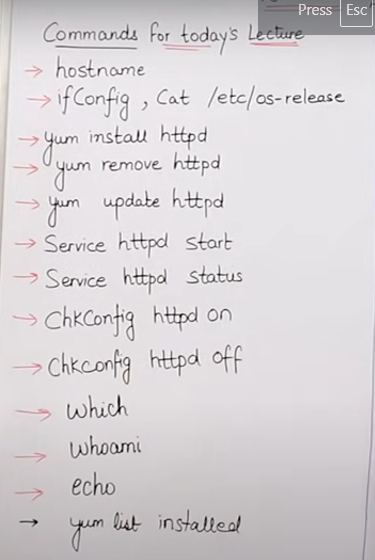 Press Esc
Commands for today's Lecture
→ hostname
→ ifConfig, Cat /etc/os-release
→ yum install httpd
→ yum remove httpd
→ yum update httpd
→ Service httpd start
→ Service httpd status
→ ChkConfig httpd on
→ Chkconfig httpd off
→ which
→ whoami
→ echo
→ yum list installed